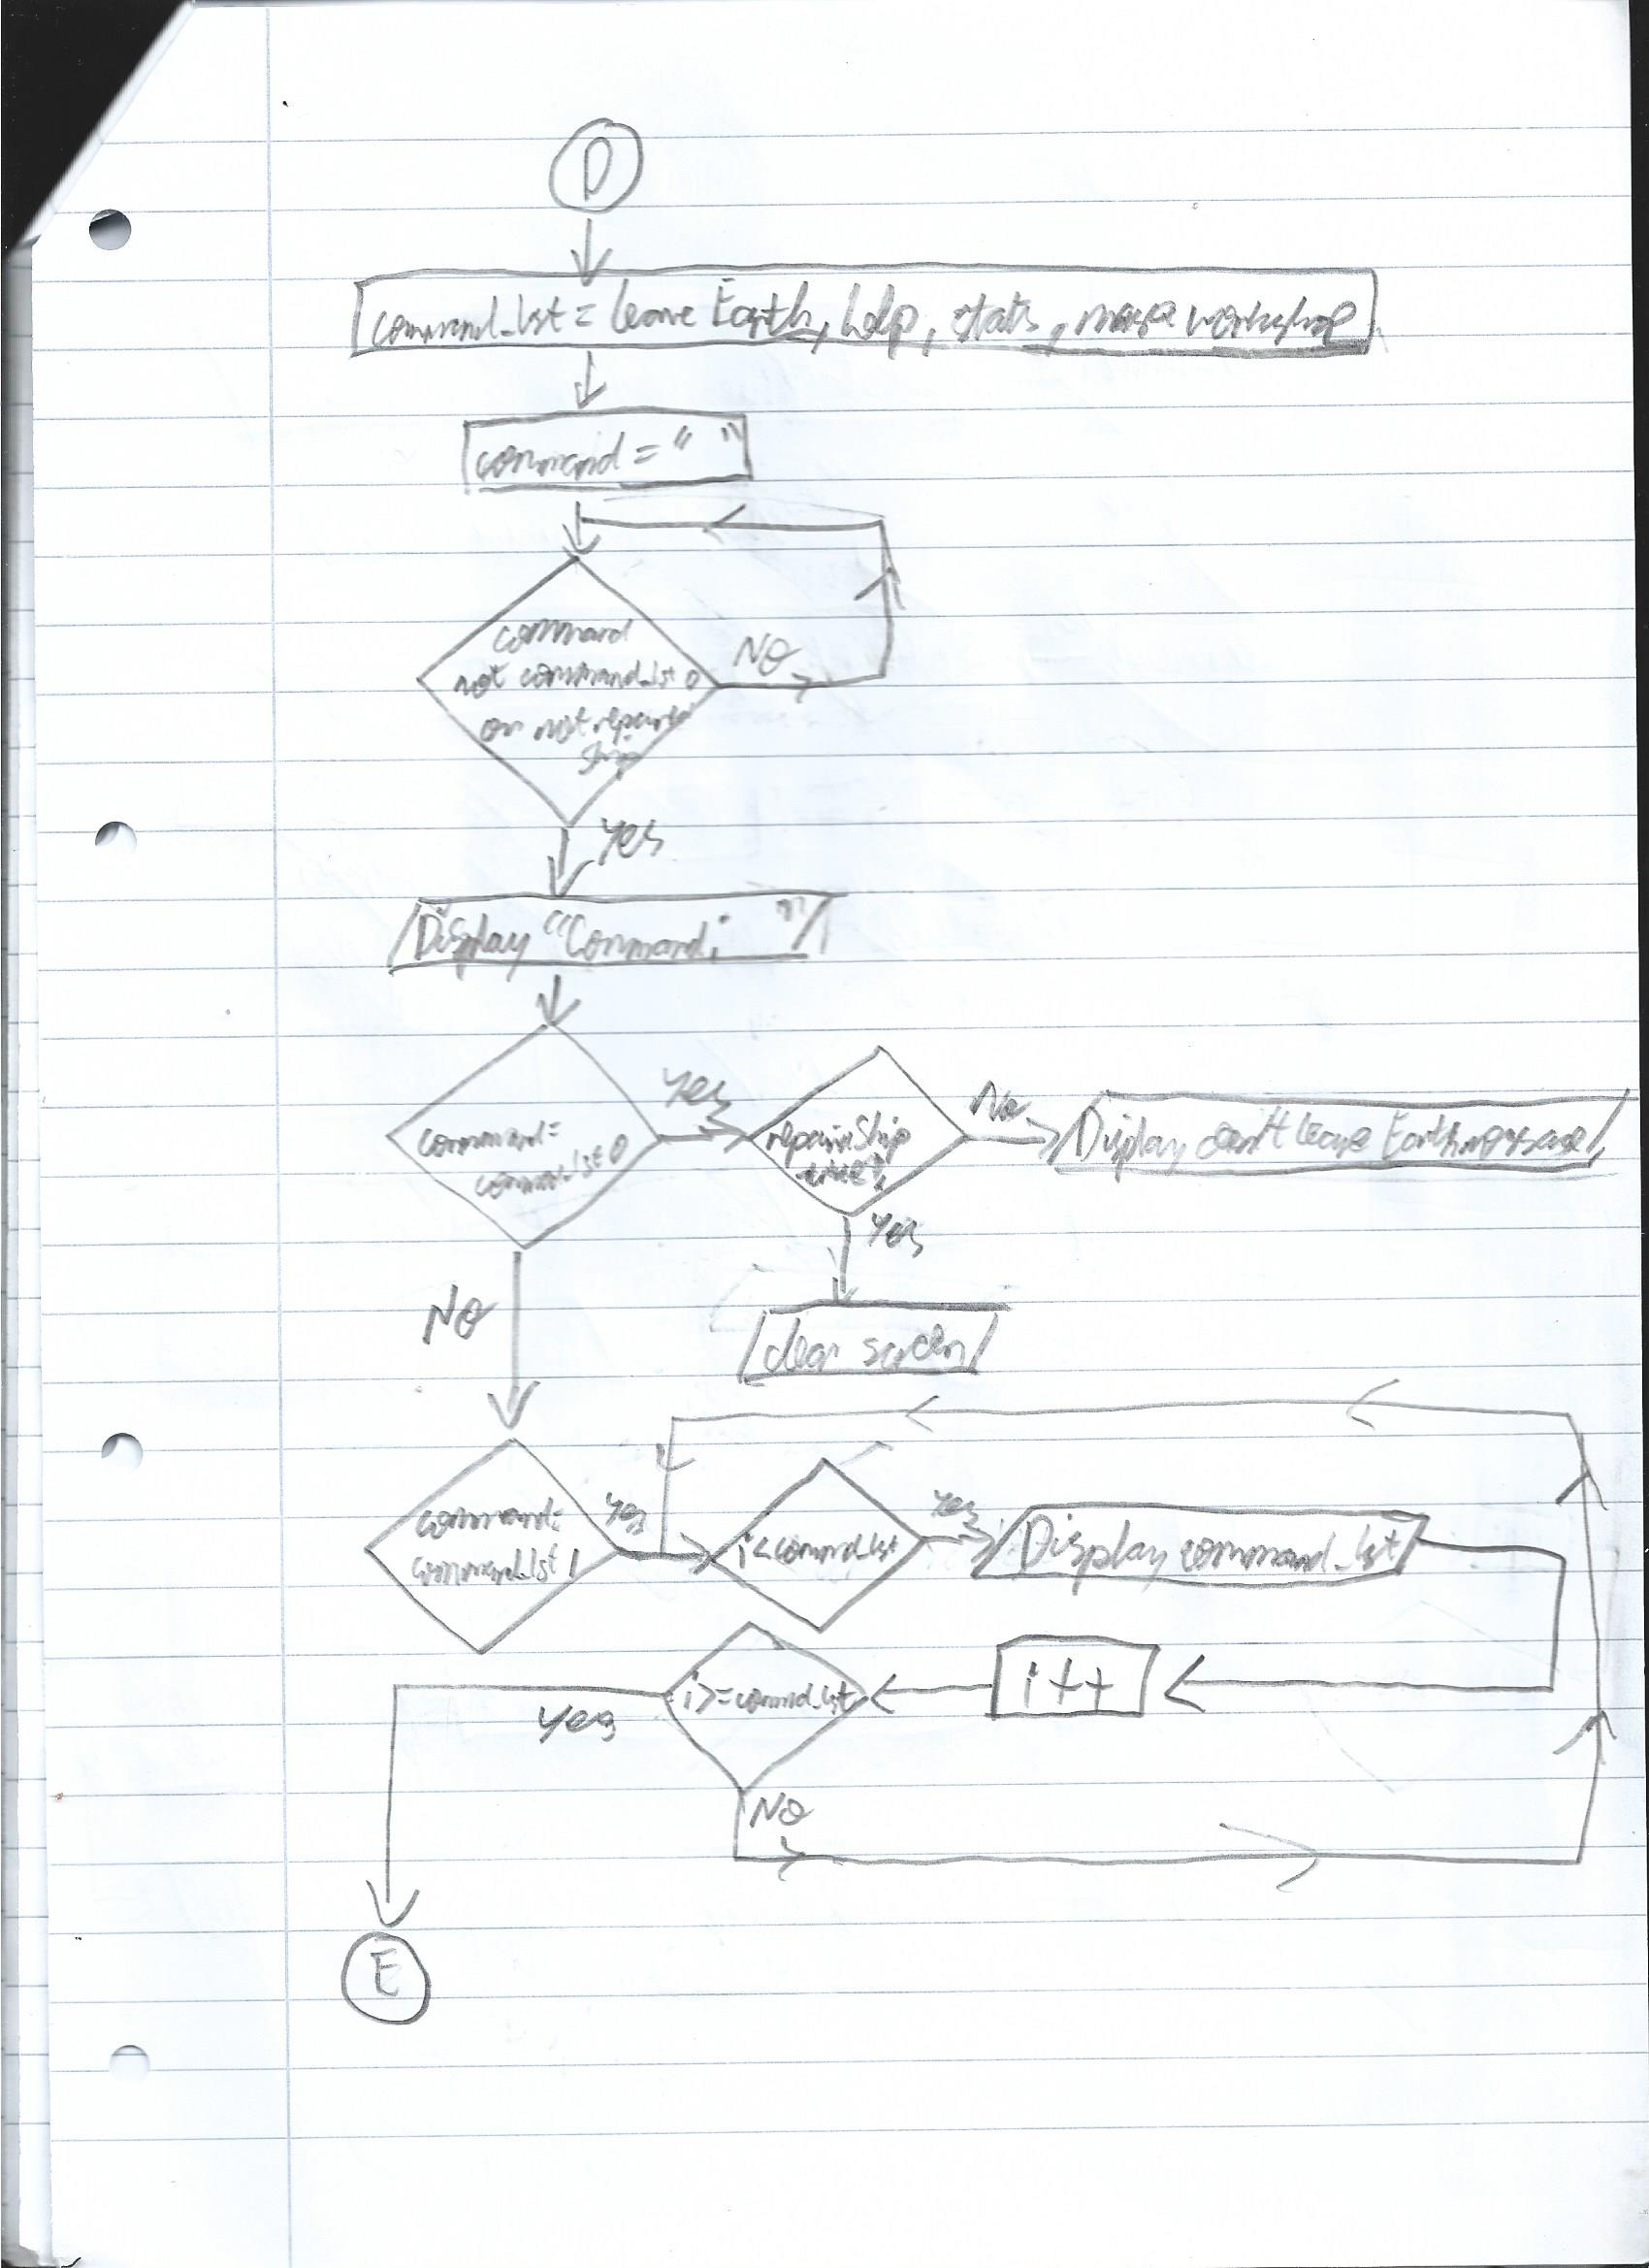 D
command_lst = leave Earth, help, stats, nasa workshop
command = " "
command
not command_lst 0
or not repaired
ship
NO
Yes
Display "Command: "
command =
command_lst 0
Yes
repairShip
No
Display can't leave Earth message
Yes
clear screen
NO
command =
command_lst 1
Yes
i < commnd_lst
Yes
Display command_lst
i ++
i >= commnd_lst
Yes
NO
E